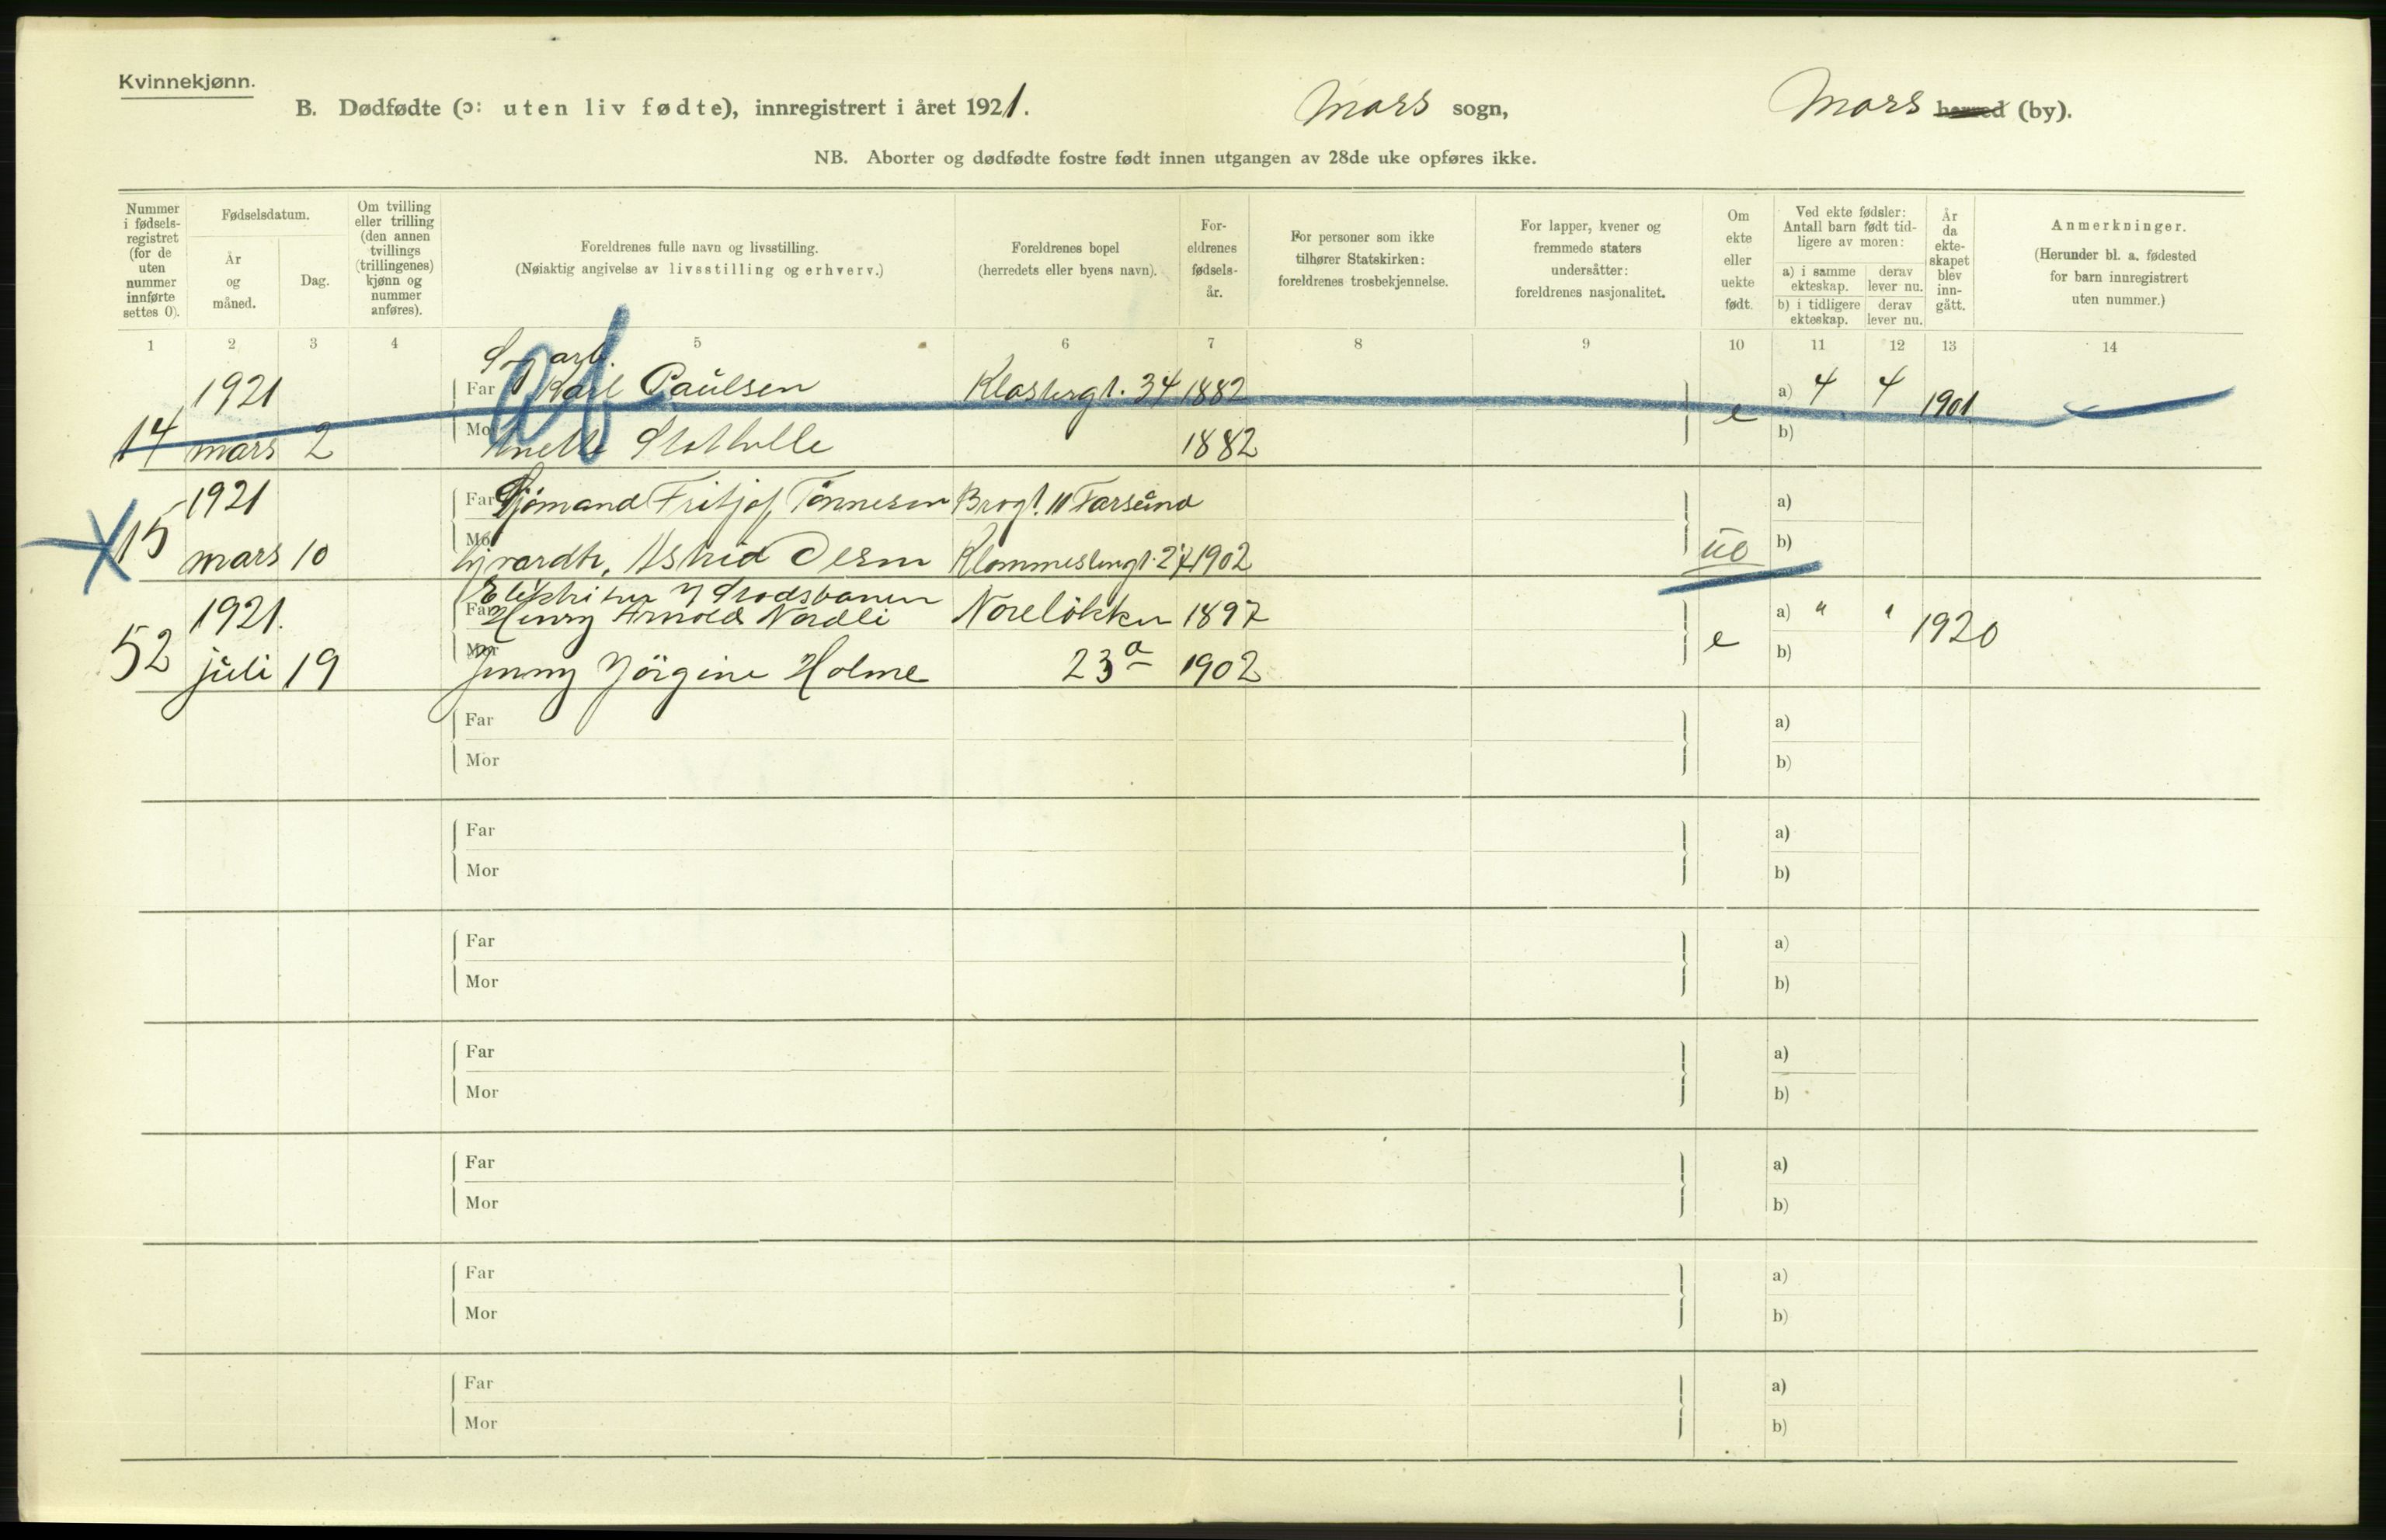 Kvinnekjønn.
B. Dødfødte (ɔ: uten liv fødte), innregistrert i året 1921. Moss sogn, Moss herred (by).
NB. Aborter og dødfødte fostre født innen utgangen av 28de uke opføres ikke.
Nummer i fødsels-registret (for de uten nummer innførte settes 0).
Fødselsdatum.
År og måned.
Dag.
Om tvilling eller trilling (den annen tvillings (trillingenes) kjønn og nummer anføres).
Foreldrenes fulle navn og livsstilling.
(Nøiaktig angivelse av livsstilling og erhverv.)
Foreldrenes bopel
(herredets eller byens navn).
For-eldrenes fødsels-år.
For personer som ikke tilhører Statskirken: foreldrenes trosbekjennelse.
For lapper, kvener og fremmede staters undersåtter: foreldrenes nasjonalitet.
Om ekte eller uekte født.
Ved ekte fødsler: Antall barn født tid-ligere av moren:
a) i samme ekteskap. derav lever nu.
b) i tidligere ekteskap. derav lever nu.
År da ekte-skapet blev inn-gått.
Anmerkninger.
(Herunder bl. a. fødested for barn innregistrert uten nummer.)
1 2 3 4 5 6 7 8 9 10 11 12 13 14
1921 Far Karl Paulsen 34 1882 e a) 4 4 1901
14 mars 2 Mor 1882 b)
1921 Far Sjømand Fritjof Tønnesen 11 Farsund a)
15 mars 10 Mor Astrid 1902 b)
1921. Far Henry Arnold Nordli Noreløkken 1897 e a) " " 1920
52 juli 19 Mor Jenny Jørgine Holme 23a 1902 b)
Far a)
Mor b)
Far a)
Mor b)
Far a)
Mor b)
Far a)
Mor b)
Far a)
Mor b)
Far a)
Mor b)
Far a)
Mor b)